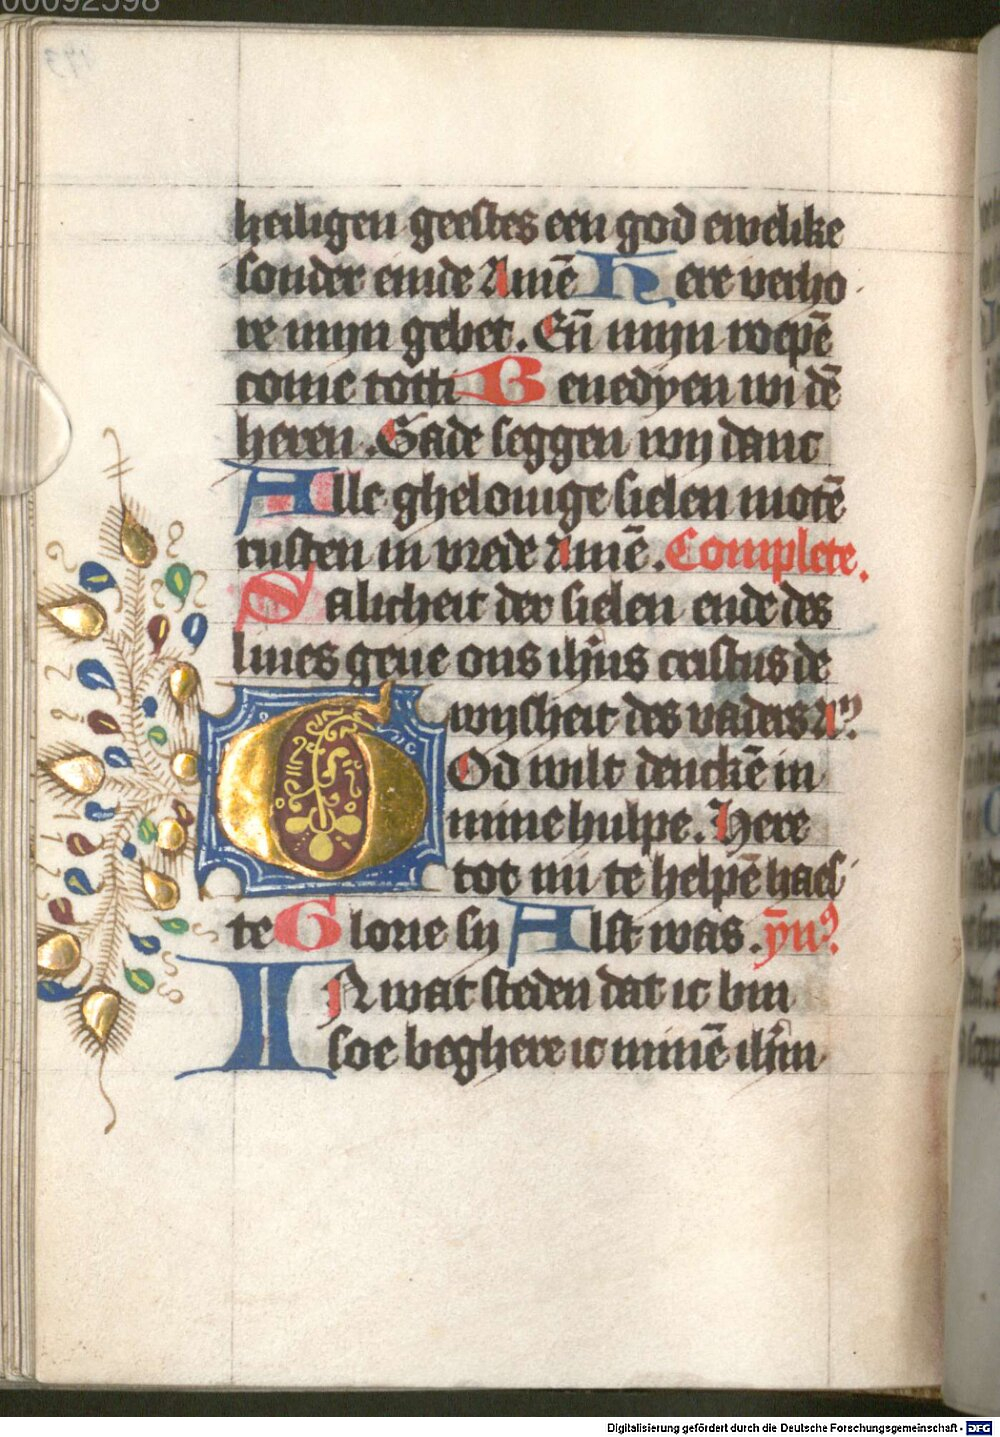 00092598
heiligen geestes een god ewelike
sonder einde Amē Here verho
re mijn gebet. Eñ mijn roepē
come totti Benedyen wi dē
heren. Gade seggen wij danc
Alle ghelouige sielen motē
rusten in vrede Amē. Complete.
Salicheit der sielen ende des
liues geue ons ihūs cristus de
wijsheit des vaders A
God wilt denckē in
mine hulpe. Here
tot mi te helpē haes
te Glorie sij Alst was. ȳn
IN wat steden dat ic bin
soe beghere ic minē ihm
Digitalisierung gefördert durch die Deutsche Forschungsgemeinschaft - DFG